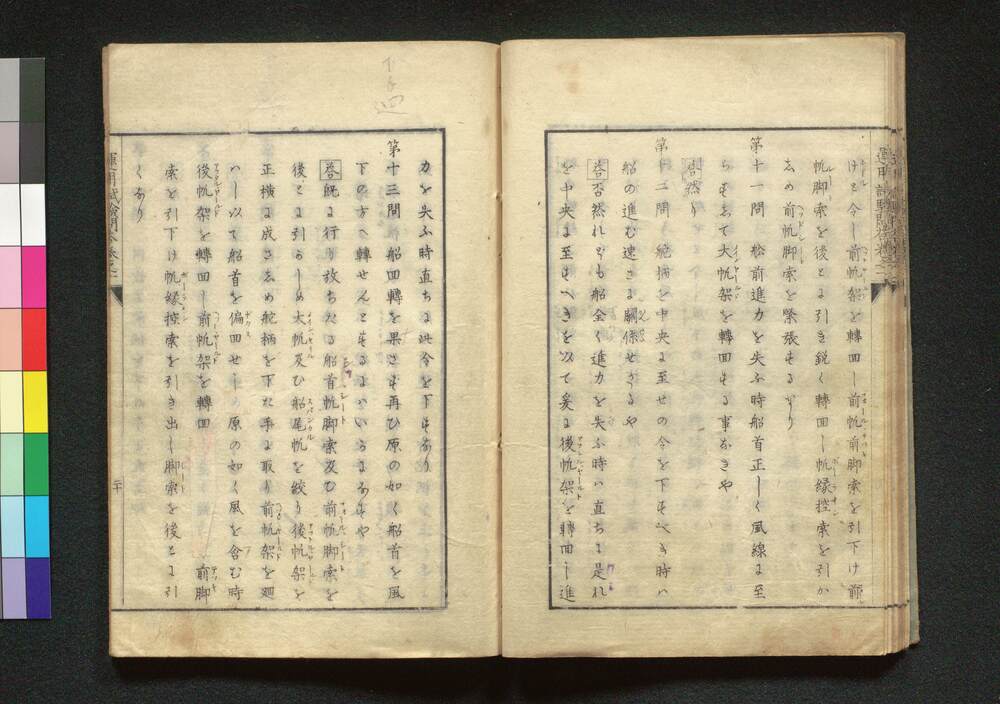 けと令し前帆架を轉回し前帆前脚索を引下け前
帆脚索を後とに引き鋭く轉回し帆縁控索を引か
しめ前帆脚索を緊張するなり
第十一問 船前進力を失ふ時船首正しく風線に至
らすして大帆架を轉回する事なきや
答然り
第十二問 舵柄を中央に至せの令を下すへき時ハ
船の進む速さに關係せさるや
答否然れとも船全く進力を失ふ時ハ直ちに是れ
を中央に至すへきを以て爰に後帆架を轉回し進
力を失ふ時直ちに此令を下すなり
第十三問 船回轉を果さす再ひ原の如く船首を風
下の方へ轉せんとするにハいかにするや
答既に行り放ちたる船首帆脚索及ひ前帆脚索を
後とに引かしめ大帆及ひ船尾帆を絞り後帆架を
正横に成さしめ舵柄を下た手に取り前帆架を廻
ハし以て船首を偏回せしめ原の如く風を含む時
後帆架を轉回し前帆架を轉回 前脚
索を引下け帆縁控索を引き出し脚索を後とに引
くなり
二十